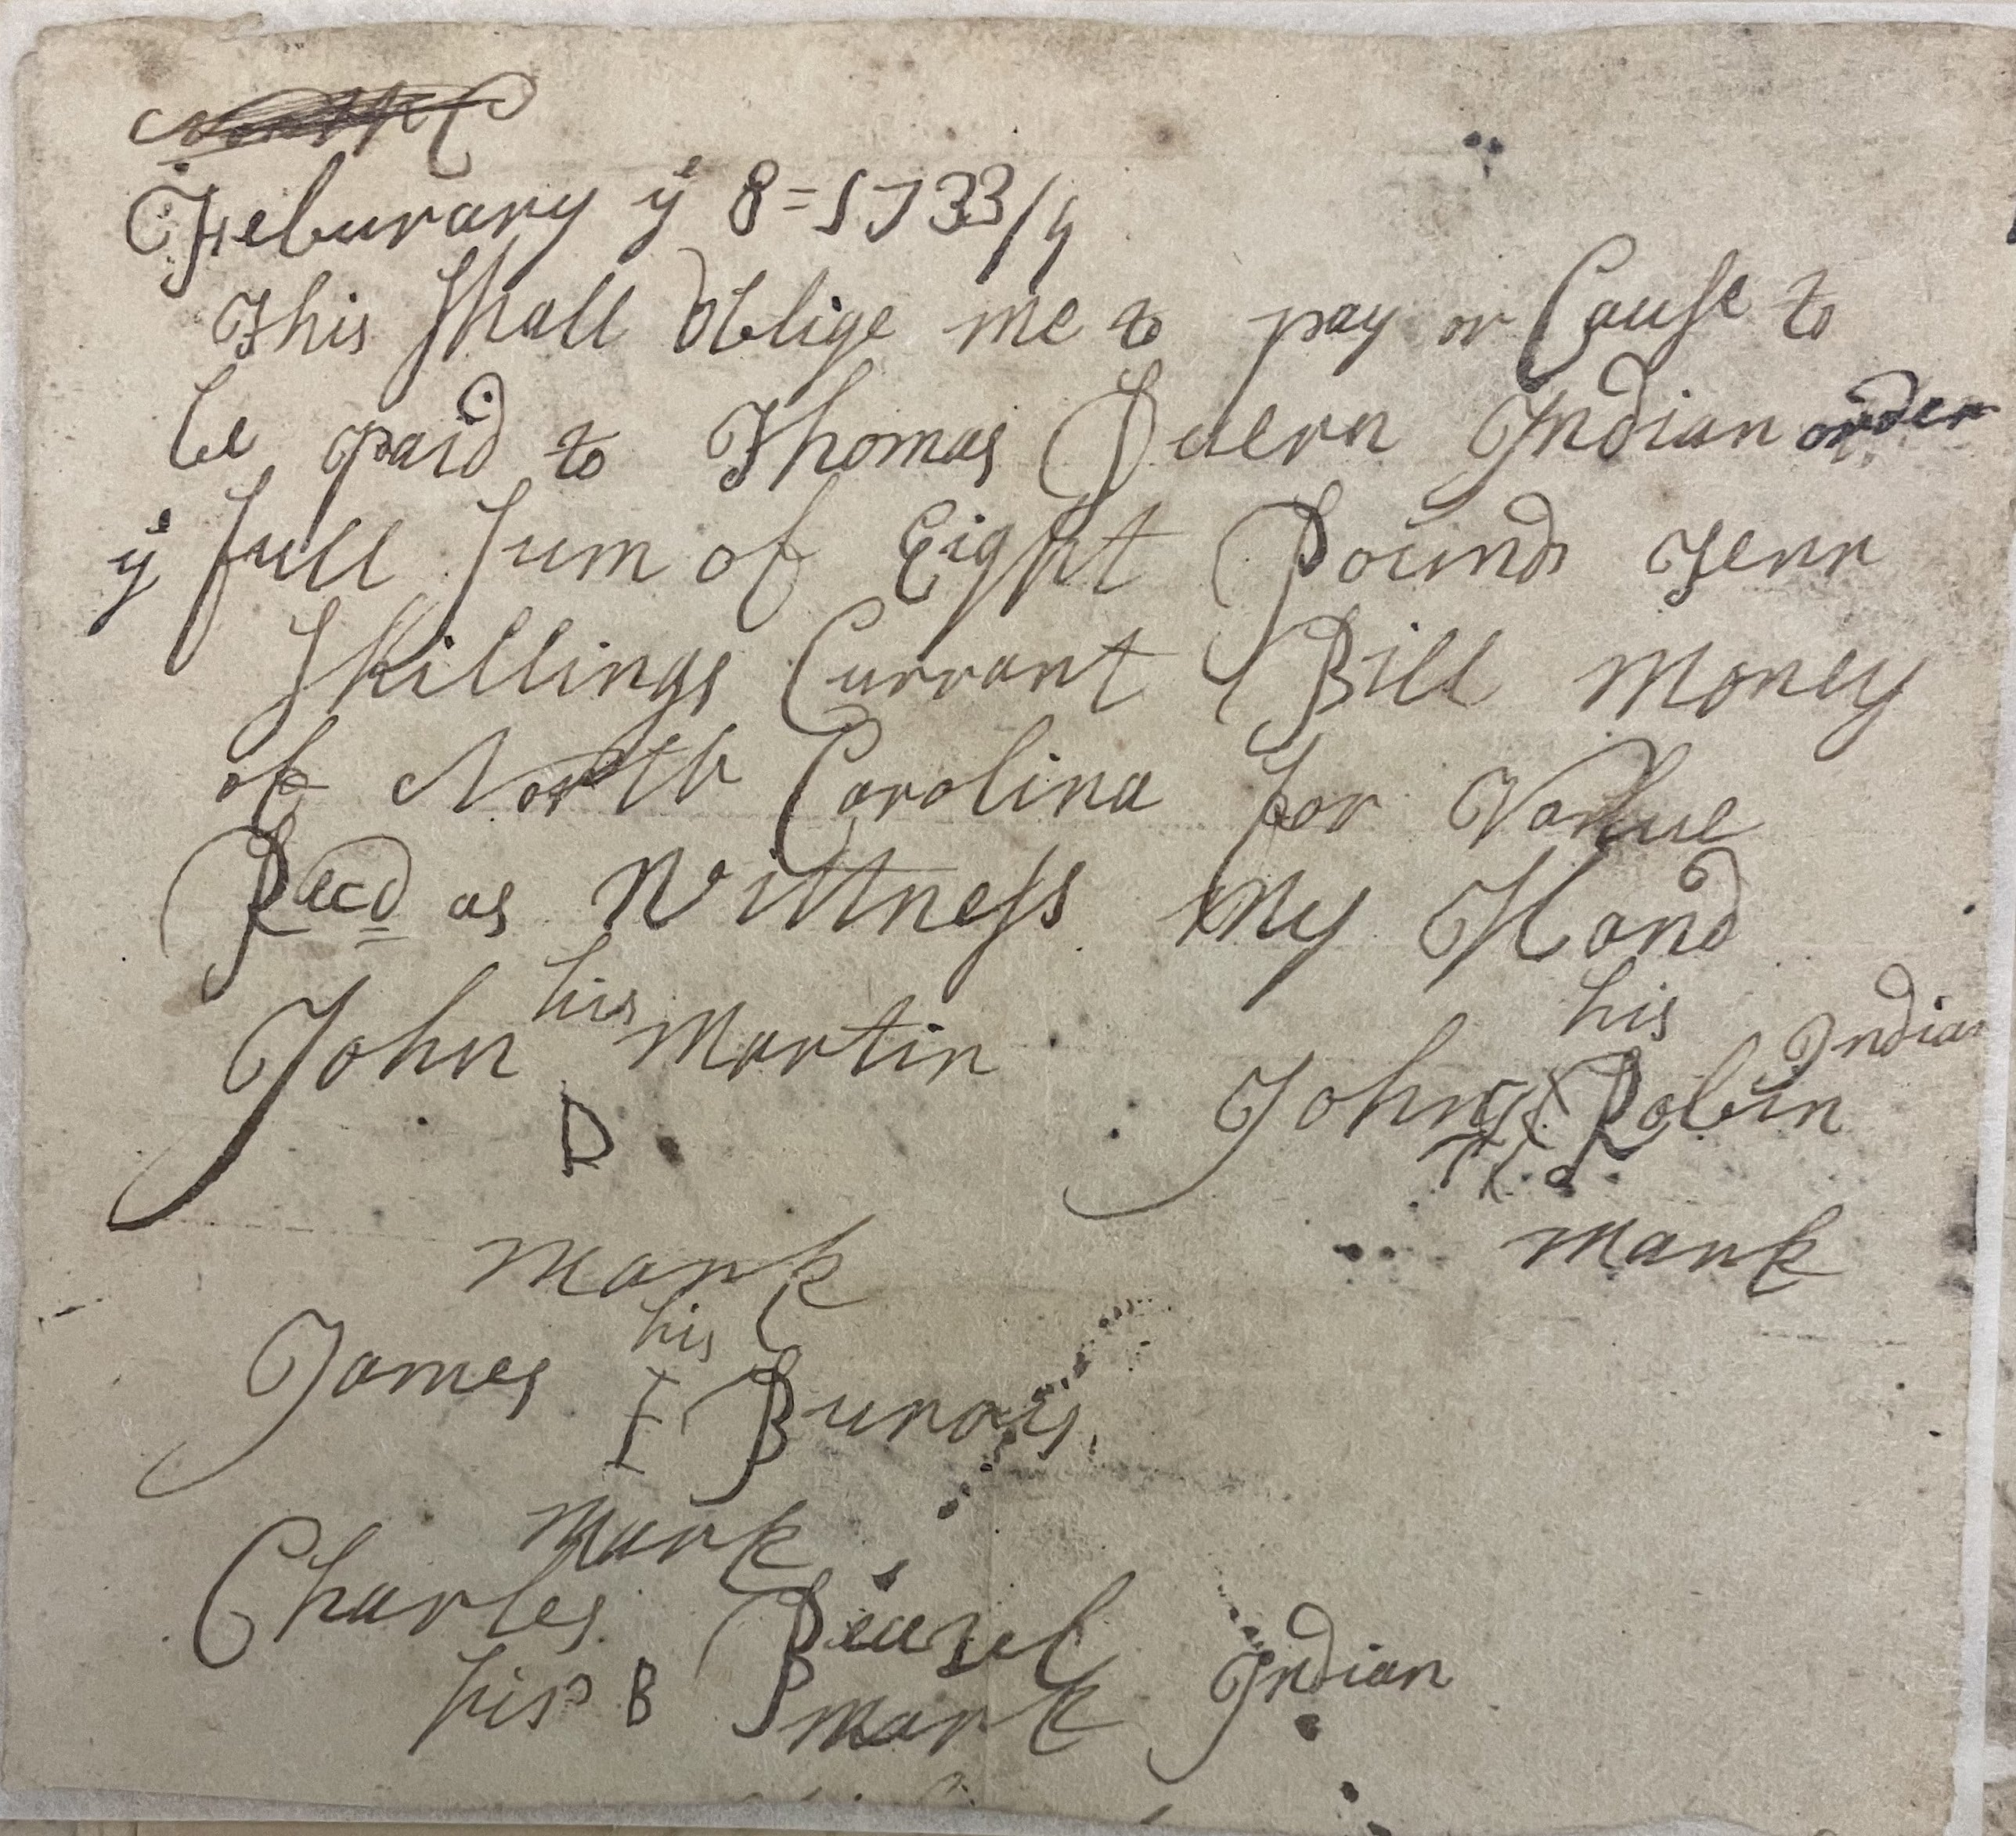 Feburary ye 8=1733/4
This Shall Oblige me to pay or Cause to
be paid to Thomas Duern Indian order
ye full Sum of Eight Pounds Tenn
Skillings Currant Bill Money
of North Carolina for Vallue
Recd as Wittness My Hand
his his Indian
John Martin John Robin
D
mark mark
his
James I Burnys
mark
Charles Beazel
his B mark Indian